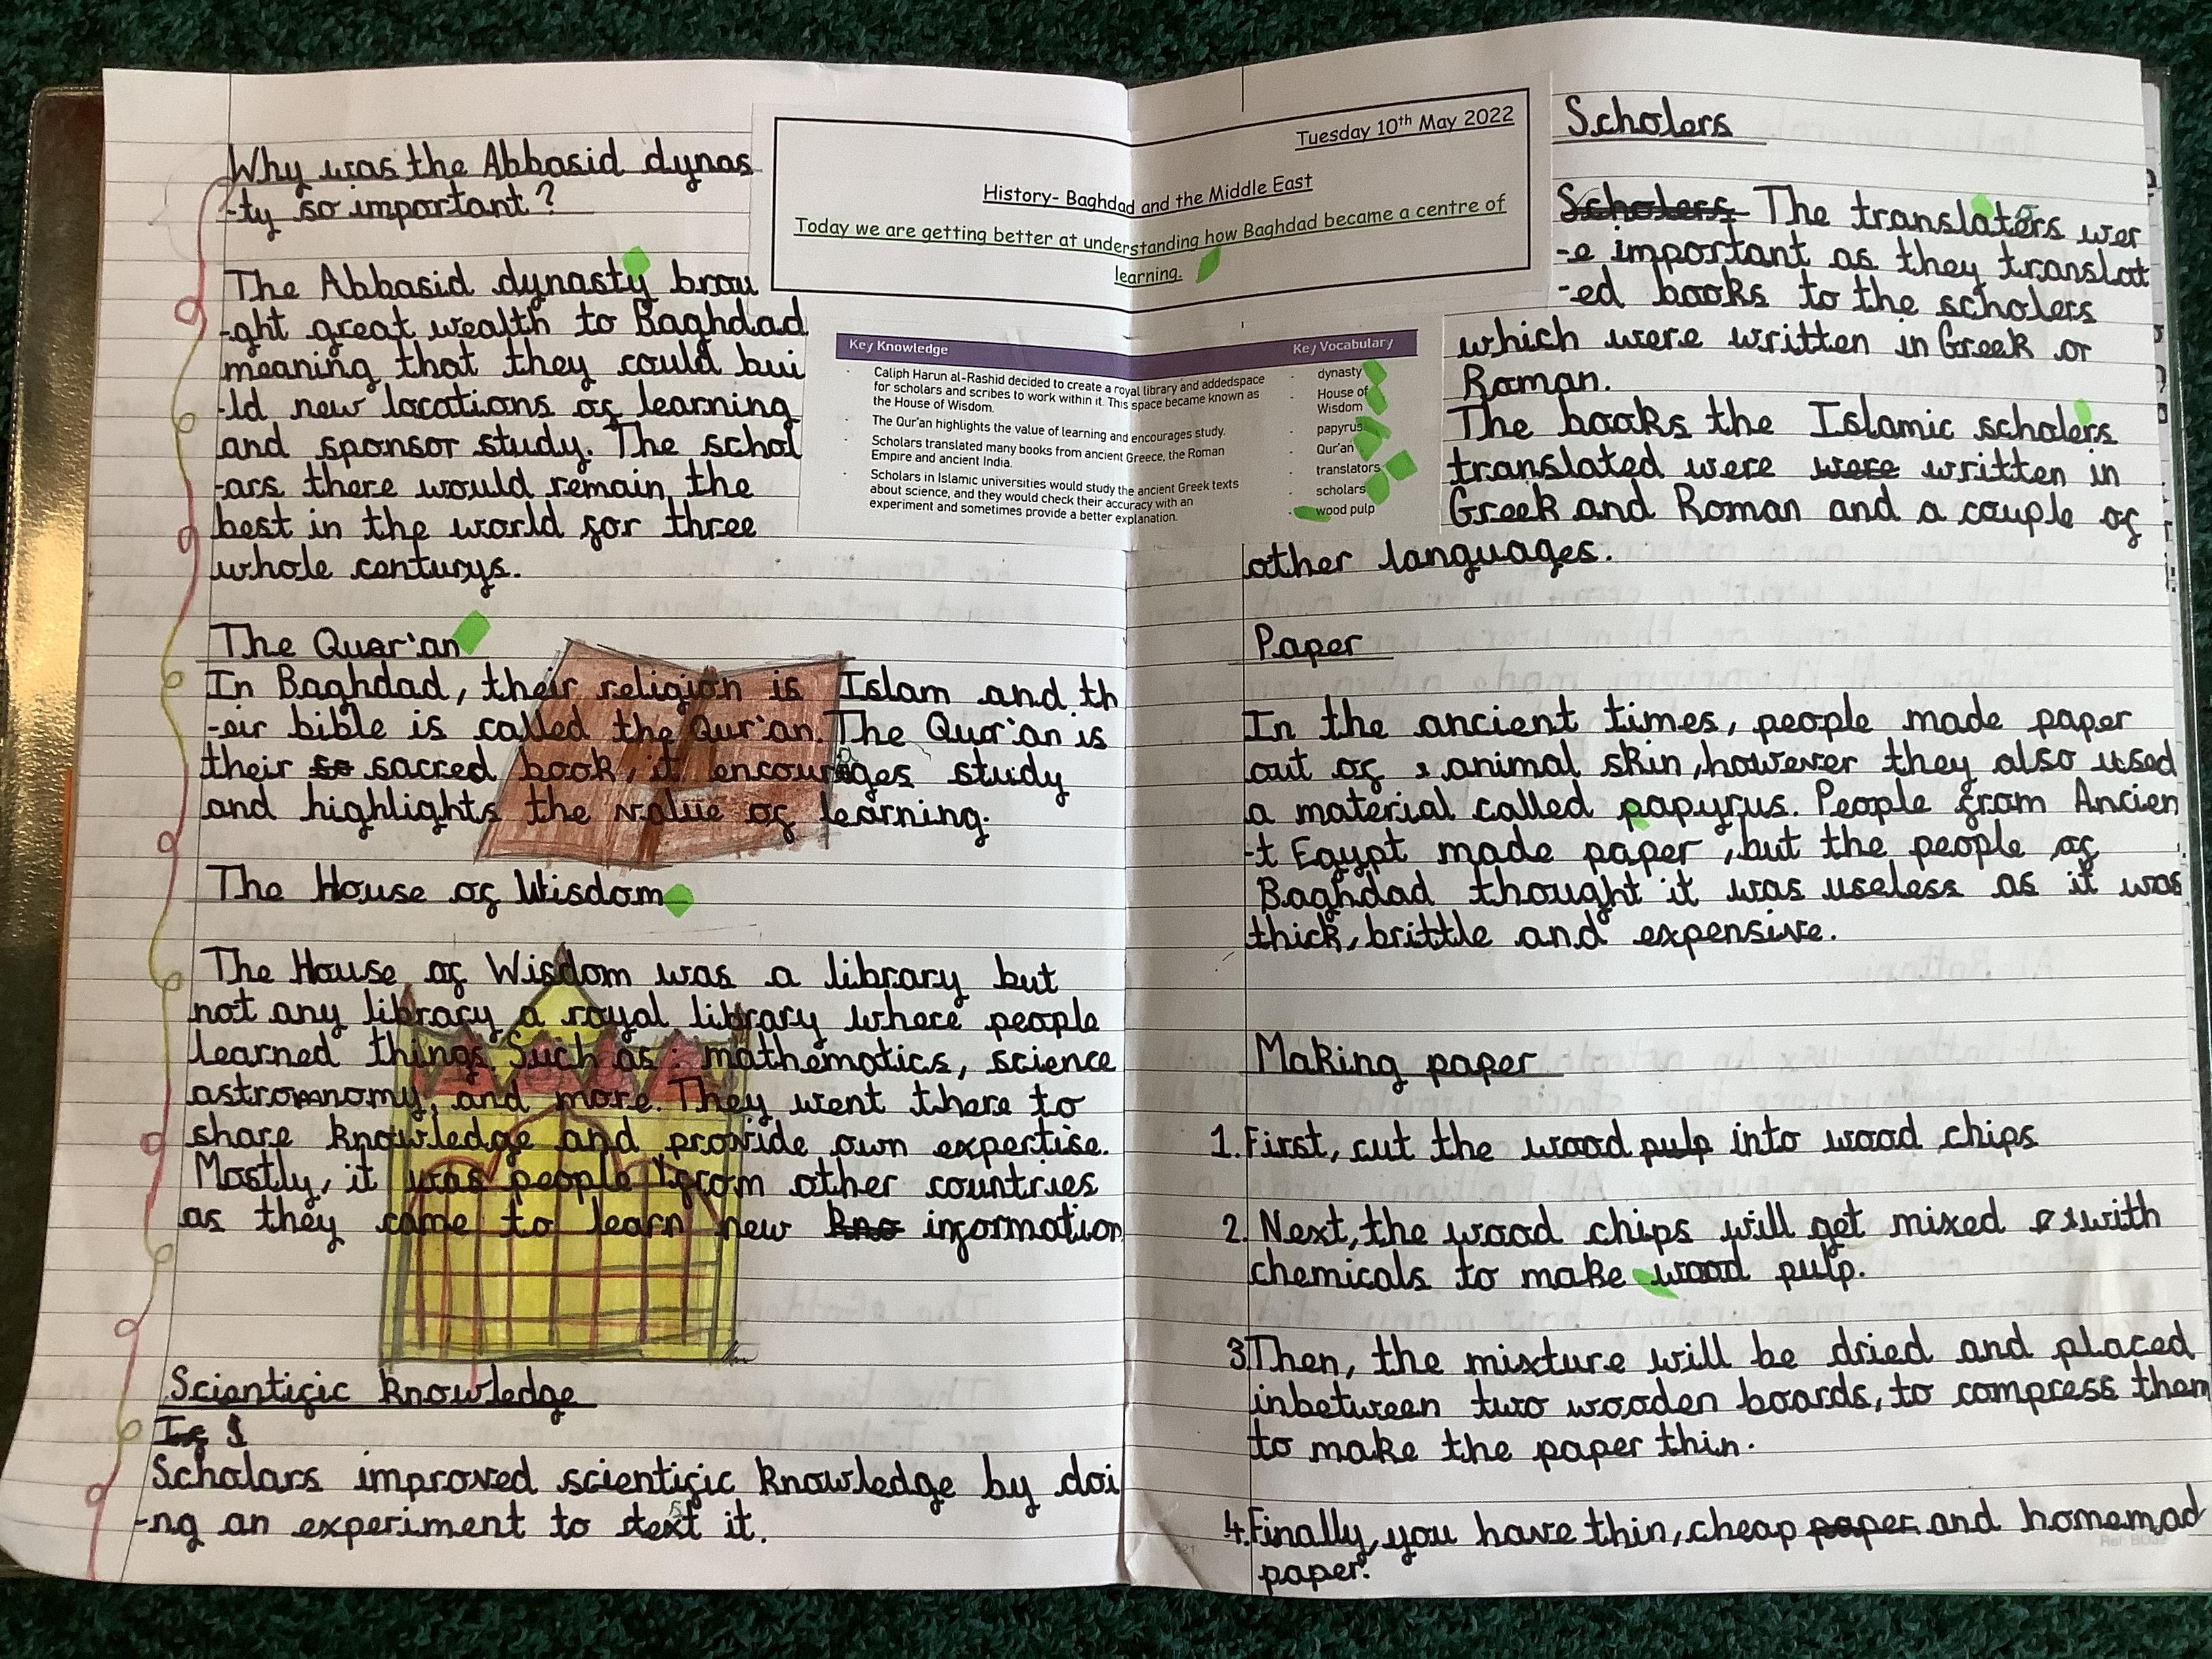 Why was the Abbasid dynas
-ty so important?
The Abbasid dynasty brou
-ght great wealth to Baghdad
meaning that they could bui
-ld new locations of learning
and sponsor study. The schol
-ars there would remain the
best in the world for three
whole centurys.
The Quar'an
In Baghdad, their religion is Islam and th
-eir bible is called the Qur'an. The Qur'an is
their so sacred book, it encourages study
and highlights the value of learning.
The House of Wisdom
The House of Wisdom was a library but
not any library a royal library where people
learned things Such as: mathematics, science
astromnomy, and more. They went there to
share knowledge and provide own expertise.
Mostly, it was people from other countries
as they came to learn new kno information
Scientific knowledge
Scholars improved scientific knowledge by doi
-ng an experiment to it.
Tuesday 10th May 2022
History- Baghdad and the Middle East
Today we are getting better at understanding how Baghdad became a centre of
learning.
Key Knowledge
- Caliph Harun al-Rashid decided to create a royal library and addedspace
for scholars and scribes to work within it. This space became known as
the House of Wisdom.
- The Qur'an highlights the value of learning and encourages study.
- Scholars translated many books from ancient Greece, the Roman
Empire and ancient India.
- Scholars in Islamic universities would study the ancient Greek texts
about science, and they would check their accuracy with an
experiment and sometimes provide a better explanation.
Key Vocabulary
- dynasty
- House of
Wisdom
- papyrus
- Qur'an
- translators
- scholars
- wood pulp
Scholers
Scholers The translators wer
-e important as they translat
-ed books to the scholers
which were written in Greek or
Roman.
The books the Islamic scholers
translated were were written in
Greek and Roman and a couple of
other languages.
Paper
In the ancient times, people made paper
out of animal skin, however they also used
a material called papyrus. People from Ancien
-t Egypt made paper, but the people of
Baghdad thought it was useless as it was
thick, brittle and expensive.
Making paper
1. First, cut the wood pulp into wood chips
2. Next, the wood chips will get mixed with
chemicals to make wood pulp.
3. Then, the mixture will be dried and placed
inbetween two wooden boards, to compress them
to make the paper thin.
4. Finally, you have thin, cheap paper and homemad
paper.